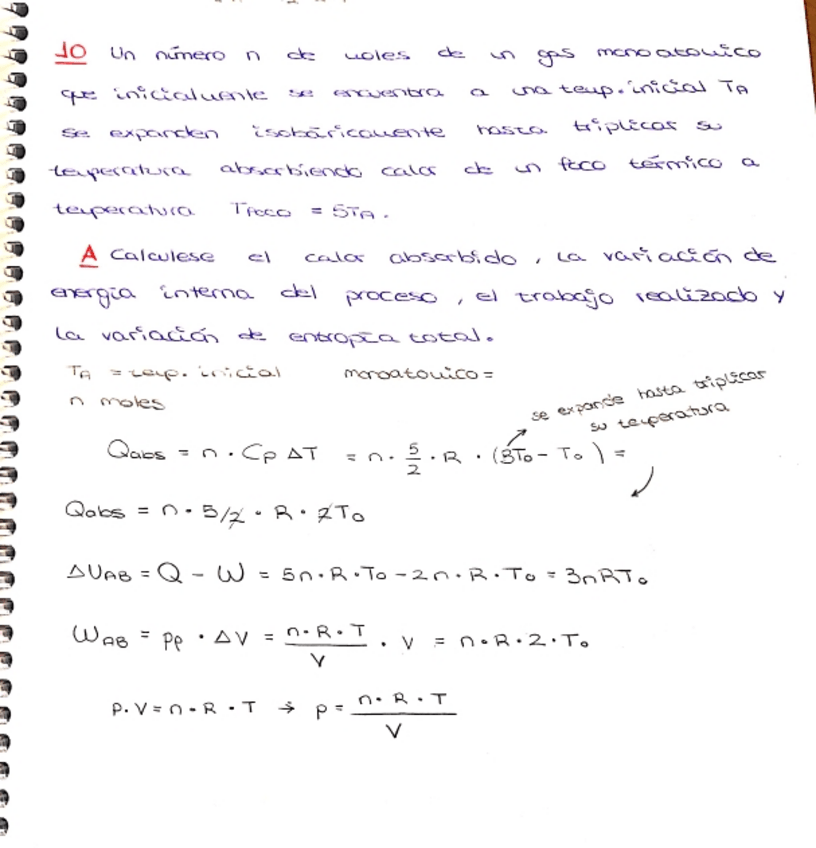 10 Un número n de moles de un gas monoatomico
que inicialmente se encuentra a una temp. inicial TA
se expanden isobáricamente hasta triplicar su
temperatura absorbiendo calor de un foco térmico a
temperatura Tfoco = 5TA.
A Calculese el calor absorbido, la variación de
energía interna del proceso, el trabajo realizado y
la variación de entropía total.
TA = temp. inicial monoatomico =
n moles
se expande hasta triplicar
su temperatura
Qabs = n · Cp ΔT = n · 5/2 · R · (3T0 - T0) =
Qabs = n · 5/2 · R · 2T0
ΔUAB = Q - W = 5n · R · T0 - 2n · R · T0 = 3nRT0
WAB = pp · ΔV = n · R · T / V · V = n · R · 2 · T0
P · V = n · R · T → p = n · R · T / V